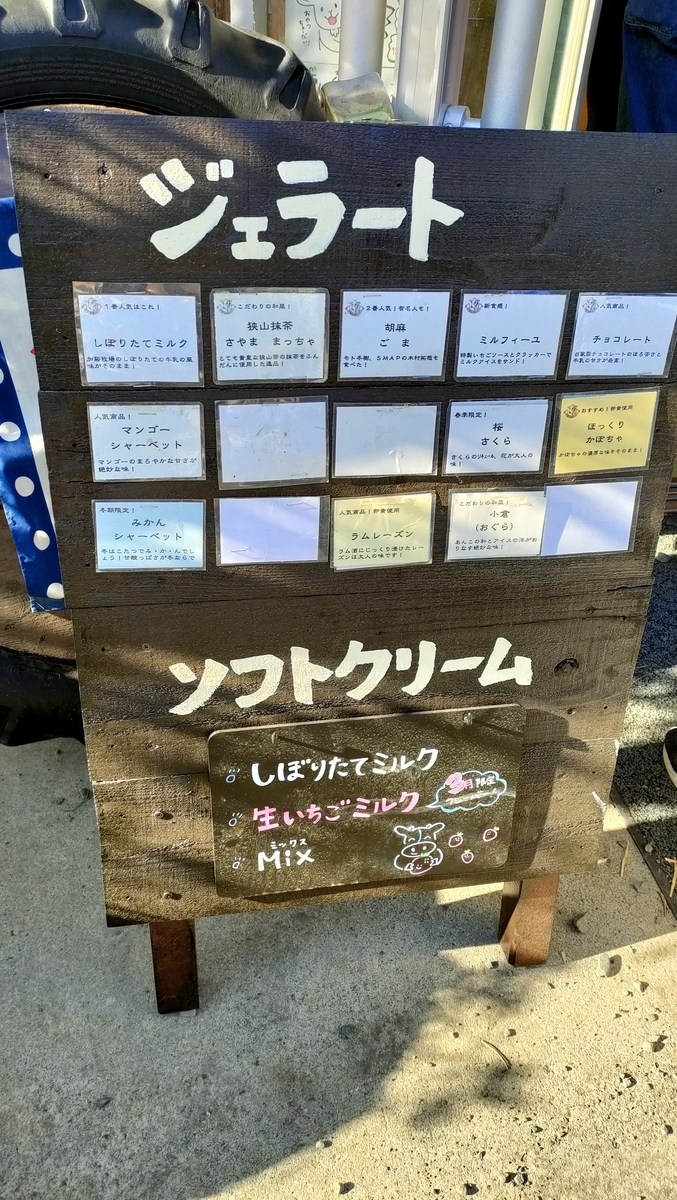 ジェラート
1番人気はこれ!
しぼりたてミルク
加藤牧場のしぼりたての牛乳の風
味がそのまま!
こだわりの和風!
狭山抹茶
さやま まっちゃ
とても貴重な狭山茶の抹茶をふん
だんに使用した逸品!
2番人気!有名人も!
胡麻
ごま
モト冬樹、SMAPの木村拓哉も
食べた!
新食感!
ミルフィーユ
特製いちごソースとクラッカーで
ミルクアイスをサンド!
人気商品!
チョコレート
牛乳の甘さが最高!
人気商品!
マンゴー
シャーベット
マンゴーのまろやかな甘さが
絶妙な味!
春季限定!
桜
さくら
さくらのリキュール、花が大人の
味!
おすすめ!卵黄使用
ほっくり
かぼちゃ
かぼちゃの濃厚な味をそのまま!
冬期限定!
みかん
シャーベット
冬はこたつでみ・か・んでし
ょう!甘酸っぱさが冬ならで
人気商品!卵黄使用
ラムレーズン
ラム酒にじっくり漬けたレー
ズンは大人の味です!
こだわりの和風!
小倉
(おぐら)
あんこの和とアイスの洋がお
りなす絶妙な味!
ソフトクリーム
しぼりたてミルク
生いちごミルク
3月限定
ミックス
Mix